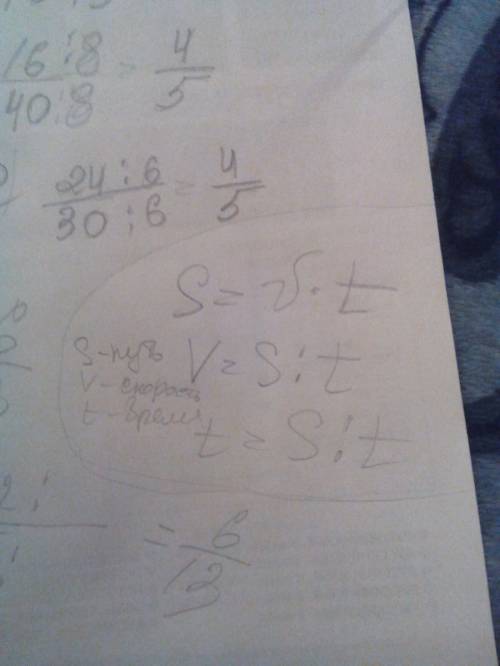 16:8 = 4
40:8 5
24:6 = 4
30:6 5
S = v·t
S-путь
V-скорость
t-время
V = S:t
t = S:t
2:
= 6
13